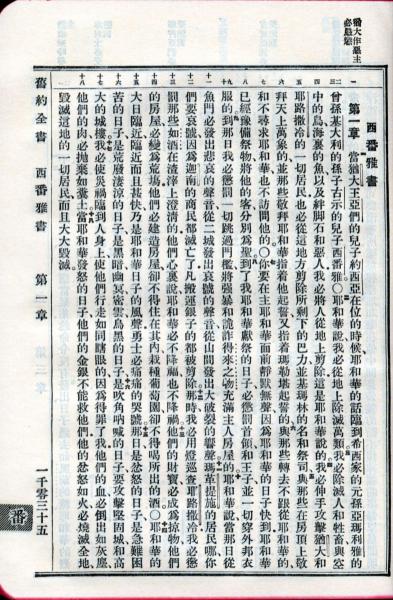 猶大作惡主
必懲惡
西番雅書
一 第一章 當猶大王亞們的兒子約西亞在位的時候耶和華的話臨到希西家的元孫亞瑪利雅的
二三 曾孫基大利的孫子古示的兒子西番雅○耶和華說我必從地上除滅萬類我必除滅人和牲畜與空
四 中的鳥海裏的魚以及絆腳石和惡人我必將人從地上剪除這是耶和華說的我必伸手攻擊猶大和
五 耶路撒冷的一切居民也必從這地方剪除所剩下的巴力並基瑪林的名和祭司與那些在房頂上敬
六 拜天上萬象的並那些敬拜耶和華指着他起誓又指着瑪勒堪起誓的與那些轉去不跟從耶和華的
七 和不尋求耶和華也不訪問他的○你要在主耶和華面前靜默無聲因為耶和華的日子快到耶和華
八 已經豫備祭物將他的客分別為聖到了我耶和華獻祭的日子必懲罰首領和王子並一切穿外邦衣
九十 服的到那日我必懲罰一切跳過門檻將強暴和詭詐得來之物充滿主人房屋的耶和華說當那日從
十一 魚門必發出悲哀的聲音從二城發出哀號的聲音從山間發出大破裂的響聲瑪革提施的居民哪你
十二 們要哀號因為迦南的商民都滅亡了凡搬運銀子的都被剪除那時我必用燈巡查耶路撒冷我必懲
十三 罰那些如酒在渣滓上澄清的他們心裏說耶和華必不降福也不降禍他們的財寶必成為掠物他們
十四 的房屋必變為荒場他們必建造房屋卻不得住在其內栽種葡萄園卻不得喝所出的酒○耶和華的
十五 大日臨近臨近而且甚快乃是耶和華日子的風聲勇士必痛痛的哭號那日是忿怒的日子是急難困
十六 苦的日子是荒廢淒涼的日子是黑暗幽冥密雲烏黑的日子是吹角吶喊的日子要攻擊堅固城和高
十七 大的城樓我必使災禍臨到人身上使他們行走如同瞎眼的因為得罪了我他們的血必倒出如灰塵
十八 他們的肉必拋棄如糞土當耶和華發怒的日子他們的金銀不能救他們他的忿怒如火必燒滅全地
毀滅這地的一切居民而且大大毀滅
舊約全書 西番雅書 第一章 一千零三十五
番